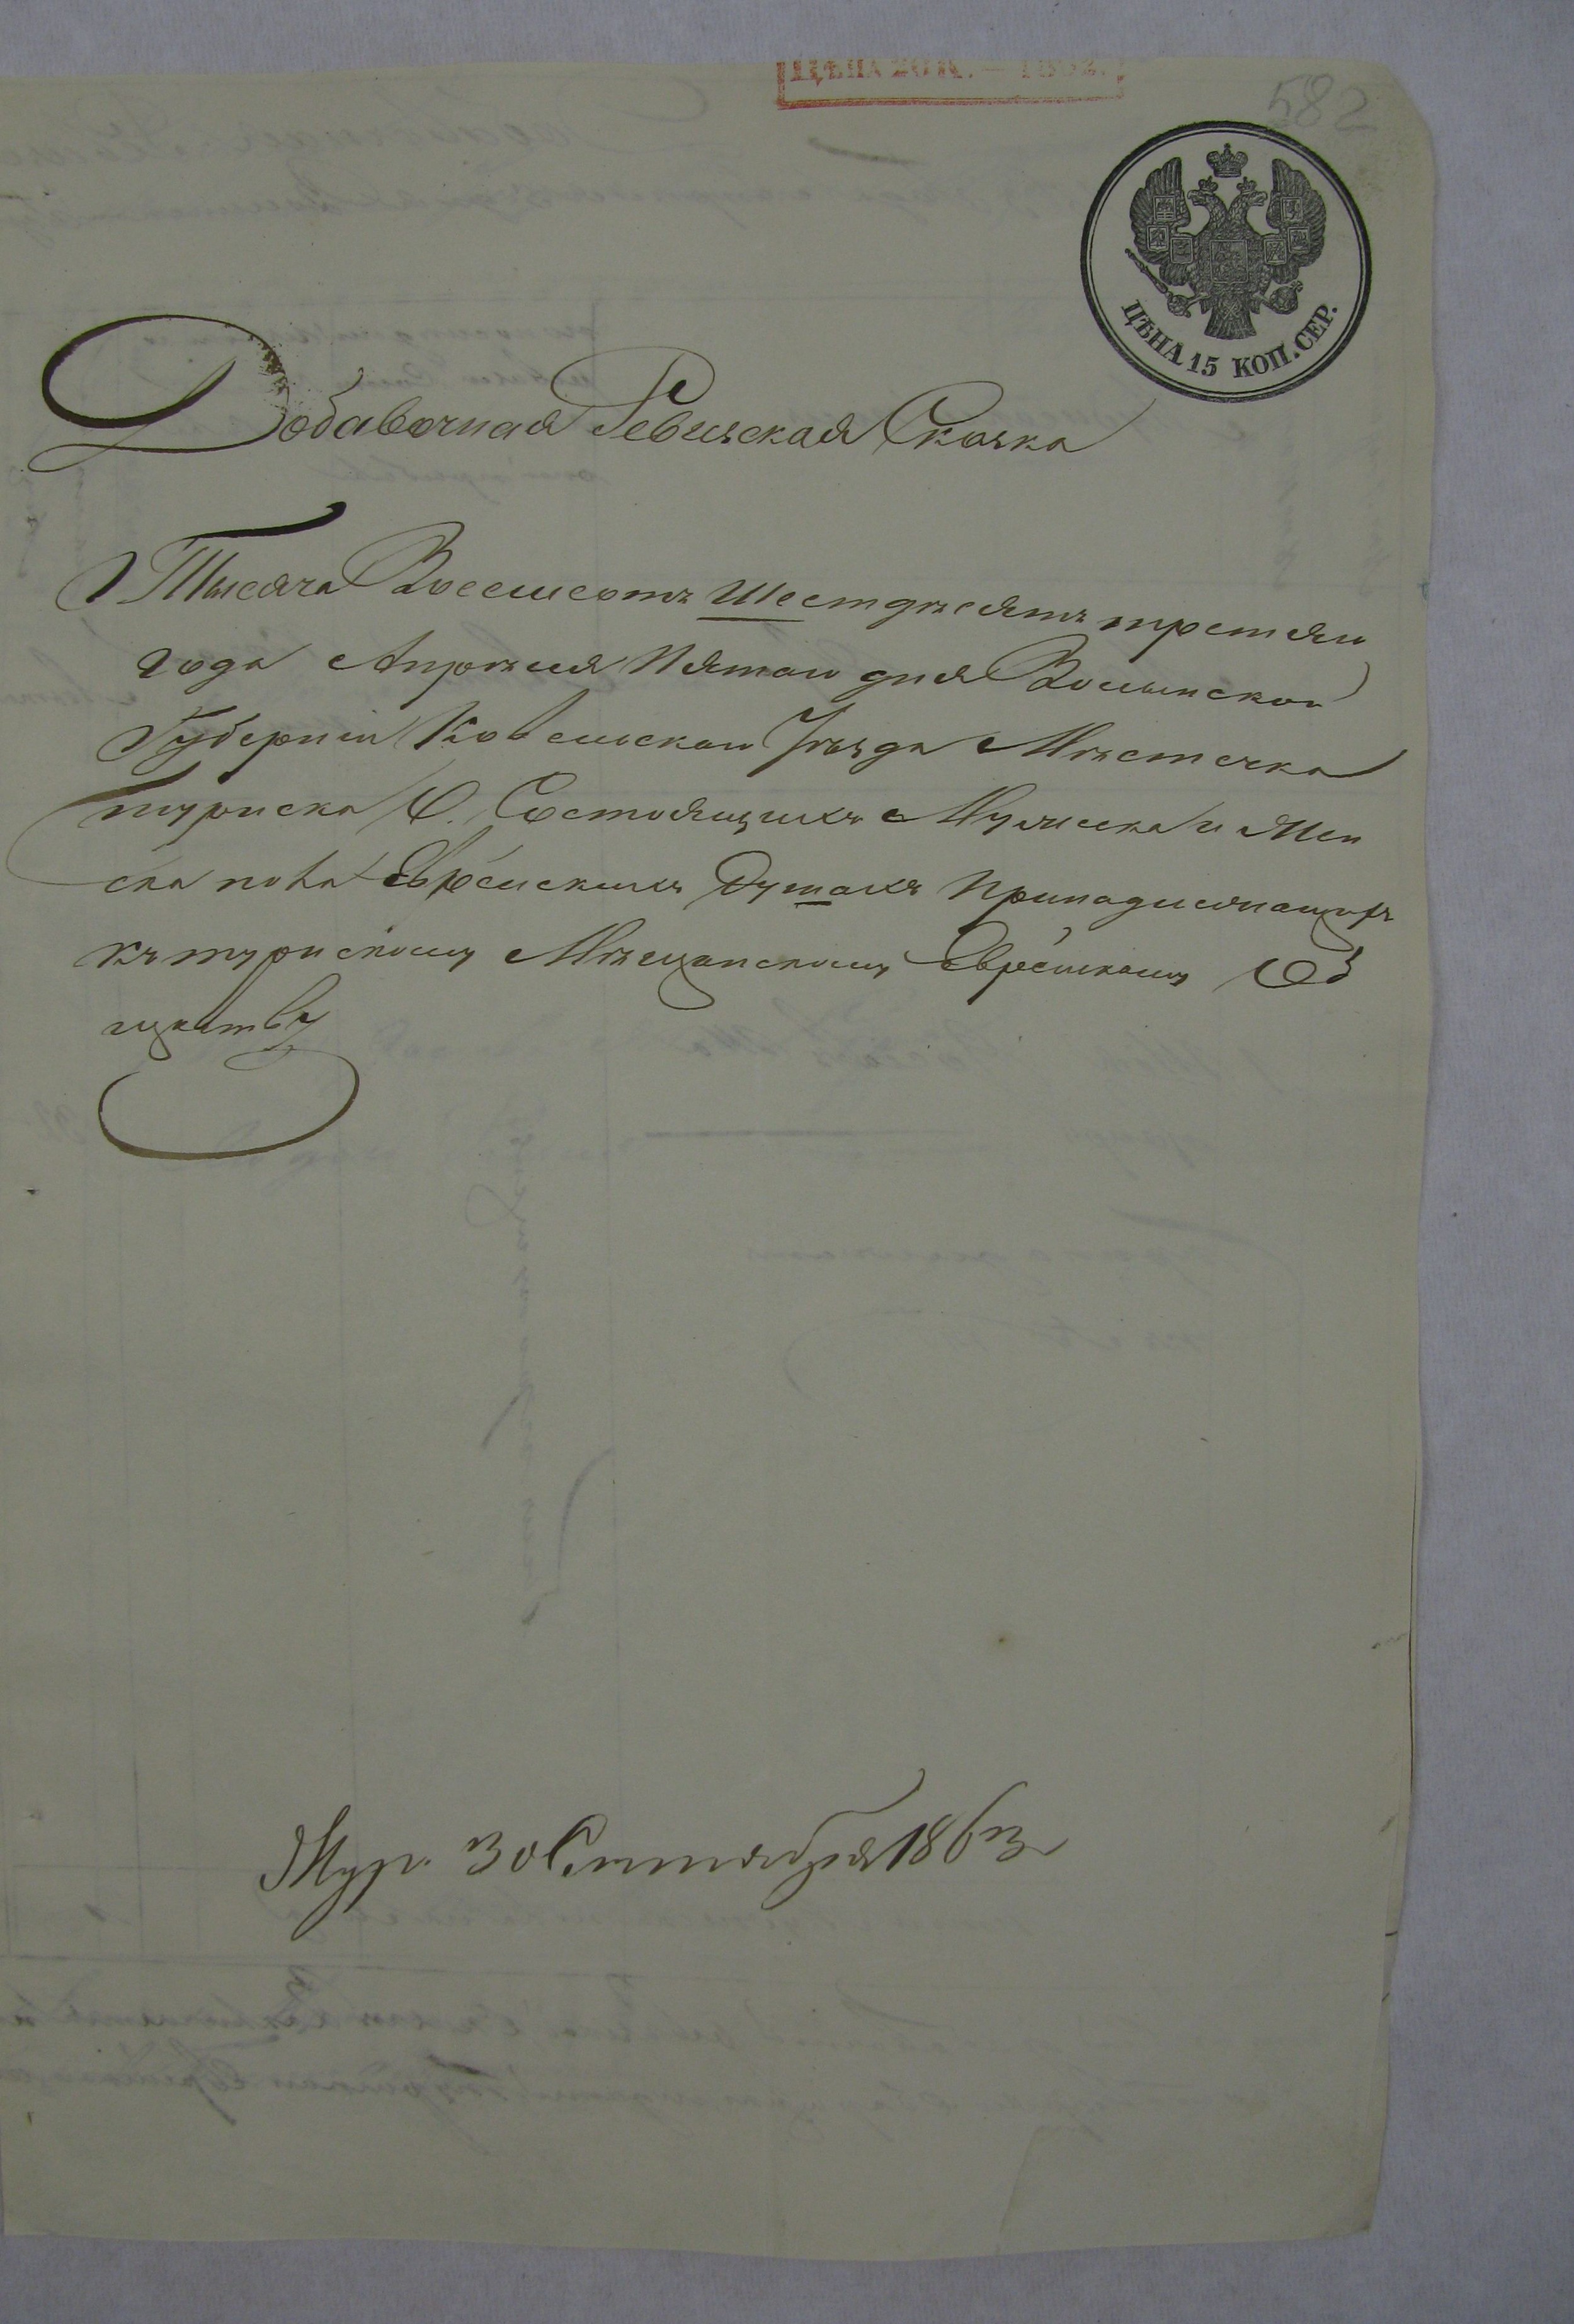 ЦѢНА 20 К. — 1862.
582
ЦѢНА 15 КОП. СЕР.
Добавочная Ревизская Сказка
Тысяча Восемсотъ Шестдесятъ третяго
года Апрѣля Пятаго дня Волынской
Губерніи Ковельскаго Уѣзда Мѣстечка
Туриска О. Состоящихъ Мужеска и Жен
ска пола Еврейскихъ Душахъ Принадлежащихъ
къ турискому Мѣщанскому Еврейскому Об
ществу
30 Сентября 1863